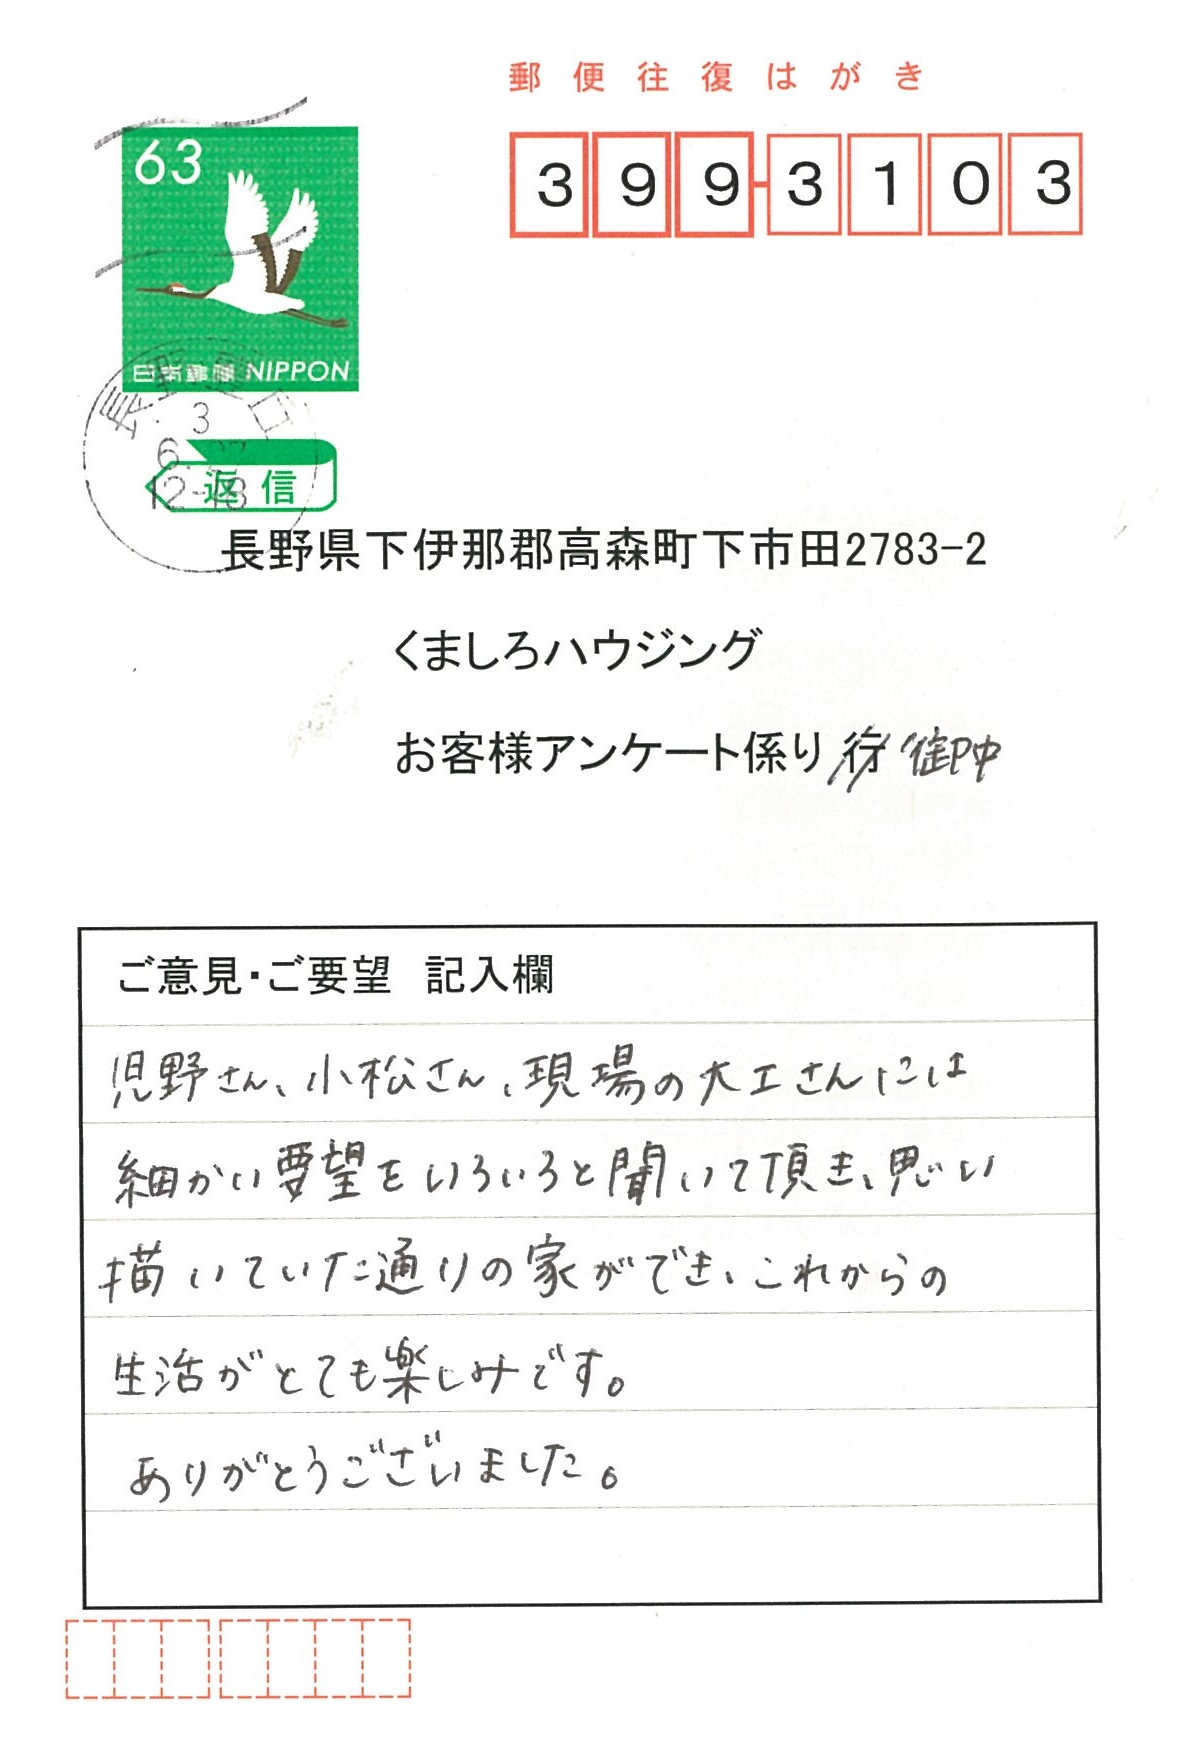 郵便往復はがき
63
399-3103
日本郵便 NIPPON
長野
3
6
12-18
返信
長野県下伊那郡高森町下市田2783-2
くましろハウジング
お客様アンケート係り 行 御中
ご意見・ご要望 記入欄
児野さん、小松さん、現場の大工さんには
細かい要望をいろいろと聞いて頂き、思い
描いていた通りの家ができ、これからの
生活がとても楽しみです。
ありがとうございました。